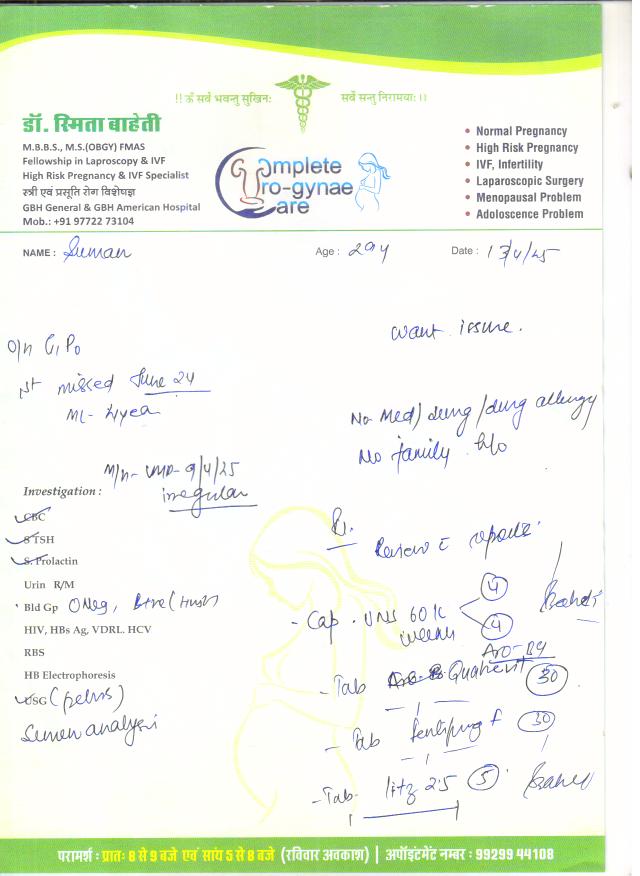 !! ॐ सर्वे भवन्तु सुखिनः सर्वे सन्तु निरामयाः !!
डॉ. स्मिता बाहेती
M.B.B.S., M.S.(OBGY) FMAS
Fellowship in Laproscopy & IVF
High Risk Pregnancy & IVF Specialist
स्त्री एवं प्रसूति रोग विशेषज्ञ
GBH General & GBH American Hospital
Mob.: +91 97722 73104
Complete
Uro-gynae
Care
• Normal Pregnancy
• High Risk Pregnancy
• IVF, Infertility
• Laparoscopic Surgery
• Menopausal Problem
• Adoloscence Problem
NAME : Suman Age : 29y Date : 13/4/25
want issure.
O/H G1P0
1st missed June 24
ML- 4year
No Med/ drug / drug allergy
No family h/o
M/H- LMP- 9/4/25
irregular
Investigation :
CBC
S TSH
S. Prolactin
Urin R/M
Bld Gp O Neg, B+ve (Husb)
HIV, HBs Ag, VDRL. HCV
RBS
HB Electrophoresis
USG (pelvis)
Semen analysis
Rx.
Review c reports.
- Cap. 60K 4
weekly 4
- Tab 30
- Tab 30
- Tab- 2.5 5
परामर्श : प्रातः 8 से 9 बजे एवं सांय 5 से 8 बजे (रविवार अवकाश) | अपॉइंटमेंट नम्बर : 99299 44108